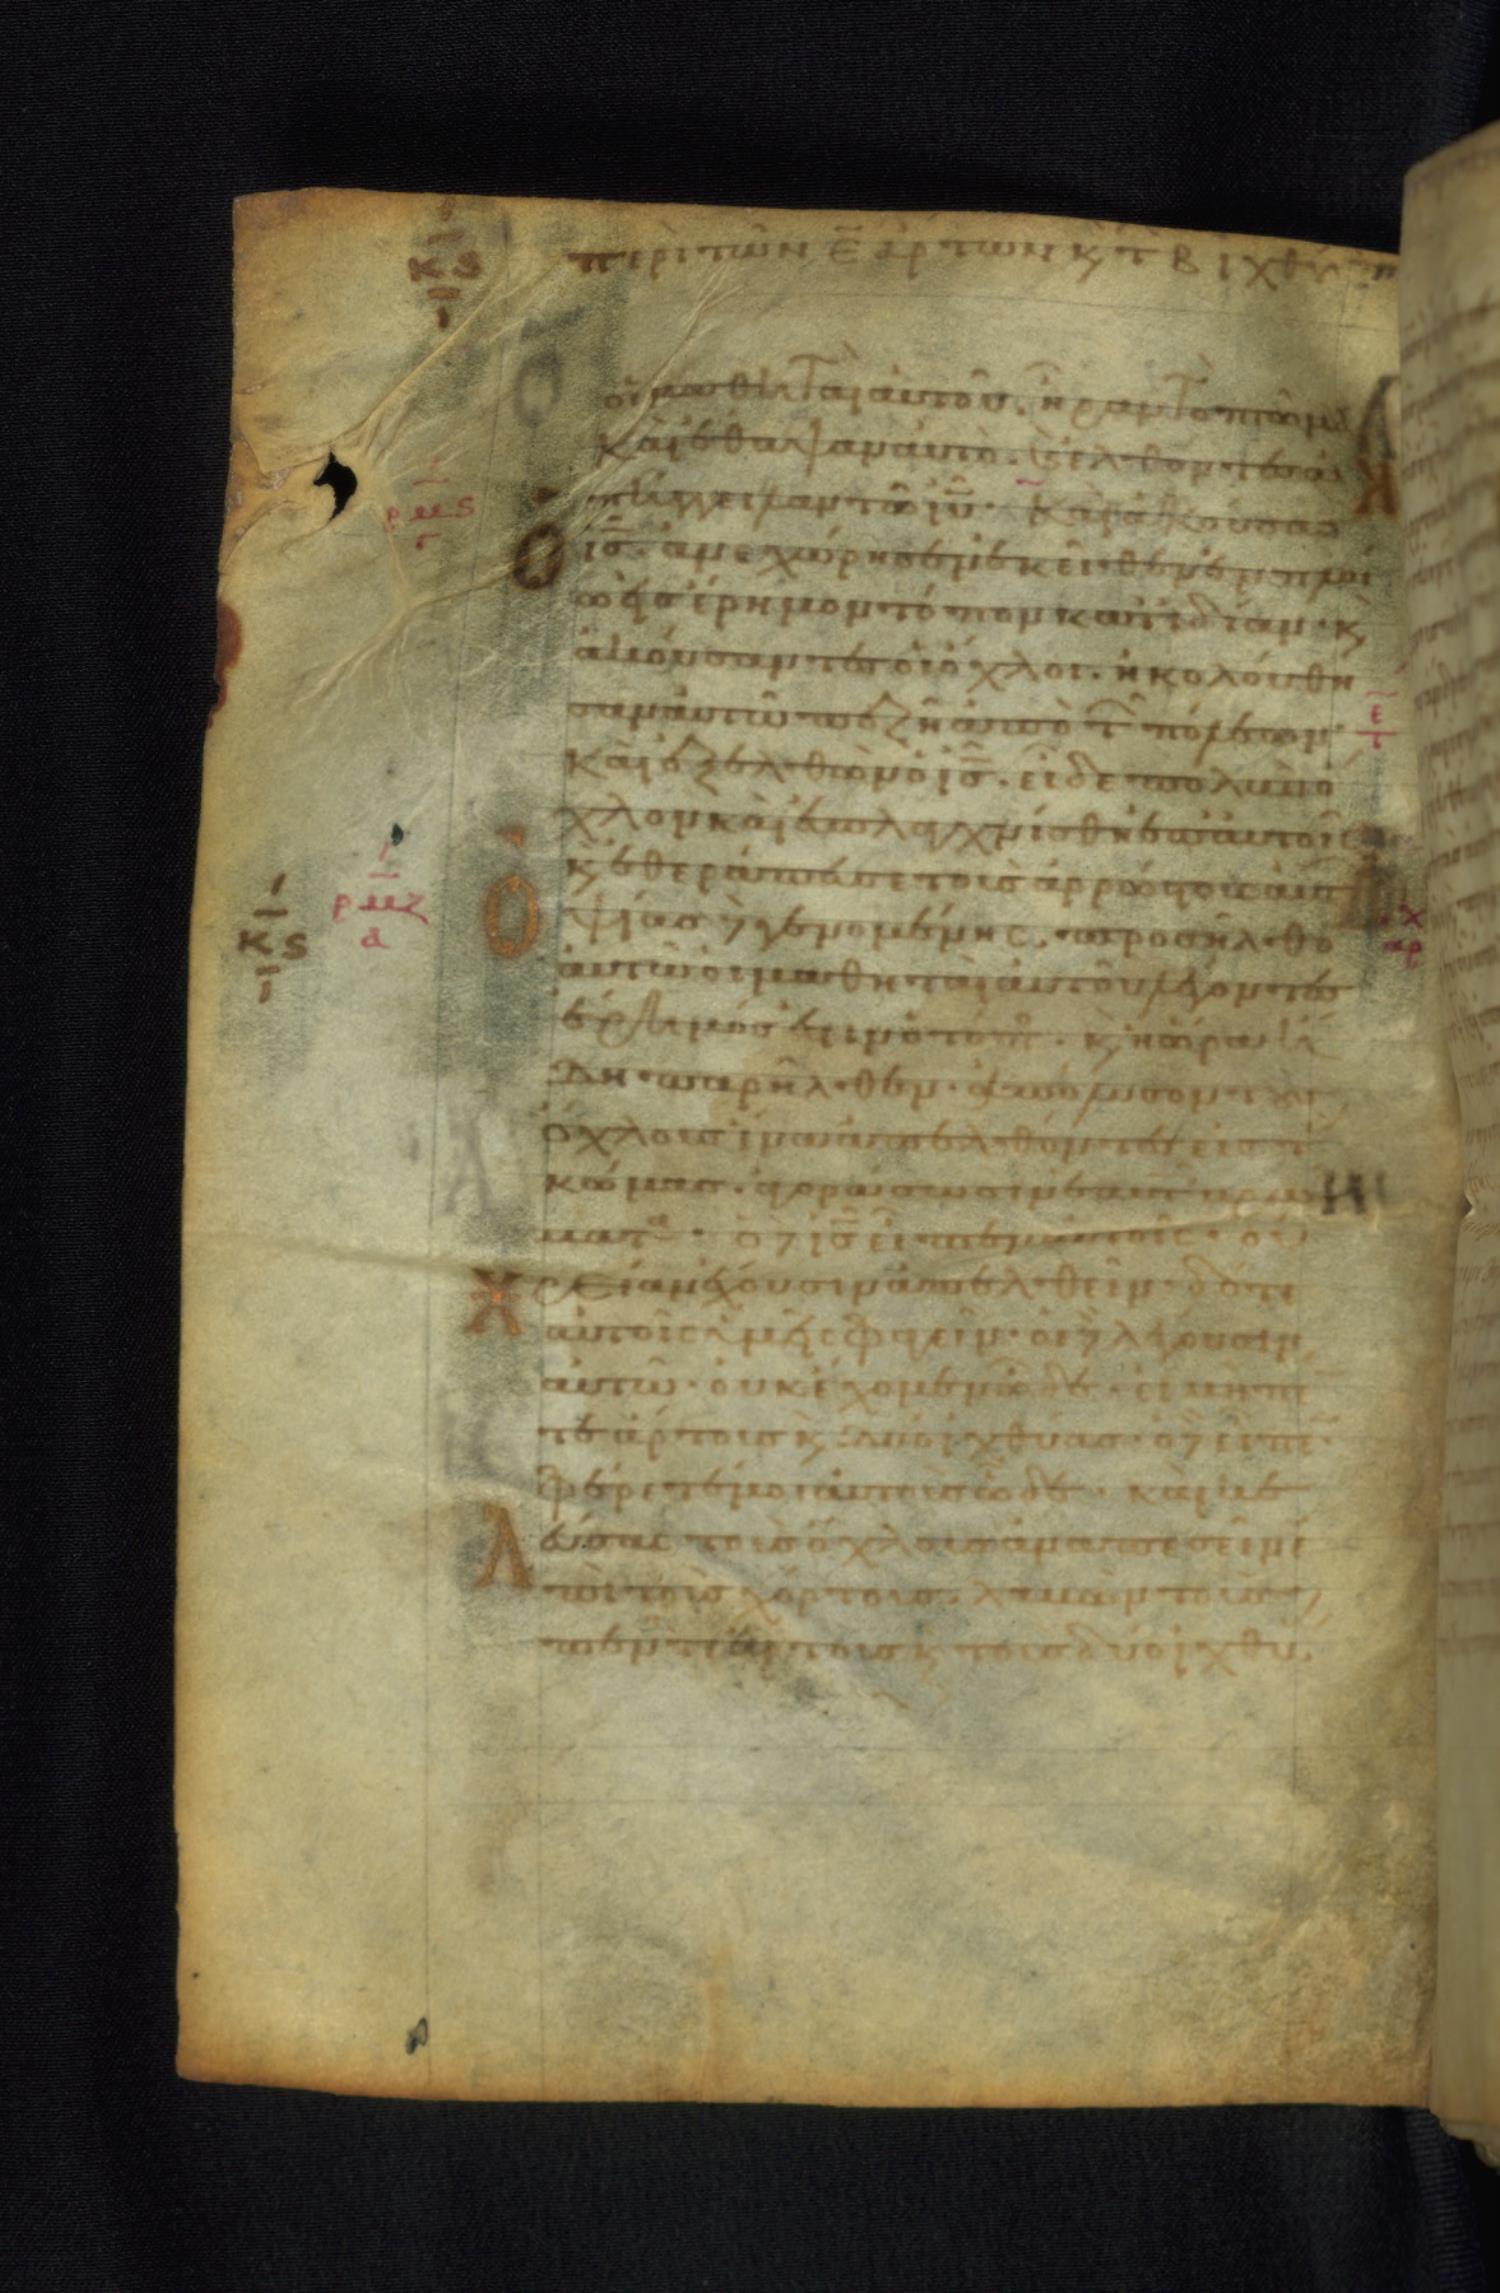 περὶ τῶν ε̄ ἄρτων κ̣ τ̄ β ἰχθύων
κς
οἱ μαθηταὶ αὐτοῦ. ἦραν τὸ πτῶμα
καὶ ἔθαψαν αὐτὸ. κ̣ ἐλθόντες ἀ
πήγγειλαν τῶ ιῡ· Καὶ ἀκούσας
ρμς
Ὁ ις̄. ἀνεχώρησεν ἐκεῖθεν ἐν πλοί
ω εἰς ἔρημον τόπον κατιδίαν· κ̣
ἀκούσαντες οἱ ὄχλοι. ἠκολούθη
σαν αὐτῶ πεζῆ ἀπὸ τ̄ πόλεων·
καὶ ἐξελθὼν ὁ ις̄. εἶδε πολὺν ὄ
χλον καὶ ἐσπλαγχνίσθη ἐπ' αὐτοῖς
κ̣ ἐθεράπευσε τοὺς ἀρρώστους αὐτ
ρμζ
κς
Ὀψίας δὲ γενομένης. προσῆλθο
αὐτῶ οἱ μαθηταὶ αὐτοῦ λέγοντες
ἔρημός ἐστιν ὁ τόπος. κ̣ ἡ ὥρα ἤ
δη παρῆλθεν. ἀπόλυσον τοὺς
ὄχλους ἵνα ἀπελθόντες εἰς τ
κώμας. ἀγοράσωσιν ἑαυτ βρώ
ματα. ὁ δὲ ις̄ εἶπεν αὐτοῖς. οὐ
Χρείαν ἔχουσιν ἀπελθεῖν. δότε
αὐτοῖς ὑμεῖς φαγεῖν. οἱ δὲ λέγουσιν
αὐτῶ. οὐκ ἔχομεν ὧδε. εἰ μὴ πέ
τε ἄρτους κ̣ δύο ἰχθύας. ὁ δὲ εἶπε.
φέρετέ μοι αὐτοὺς ὧδε. καὶ κε
Λεύσας τοὺς ὄχλους ἀναπεσεῖν ἐ
πὶ τοὺς χόρτους. λαβὼν τοὺς
πέντε ἄρτους κ̣ τοὺς δύο ἰχθύ